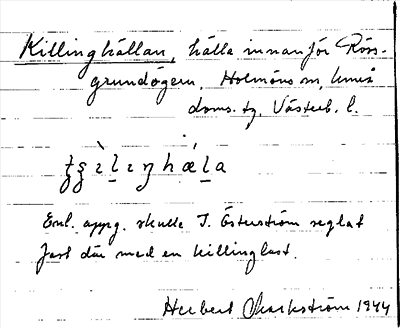 Killinghällan, hälla innanför Röss-
grundögern, Holmöns sn, Umeå
doms. tg, Västerb. l.
ẓʂɛ̀l̠ɛŋhǽl̠a
Enl. uppg. skulle J. Österström seglat
fast där med en killinglast.
Herbert Markström 1944